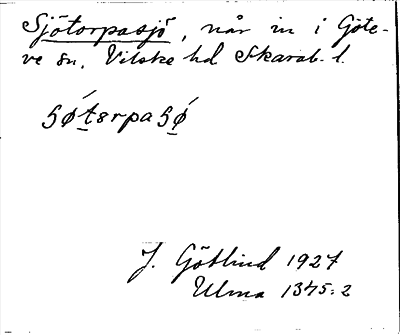 Sjötorpasjö, når in i Göte-
ve sn. Vilske hd Skarab. l.
J. Götlind 1927
Ulma 1375:2